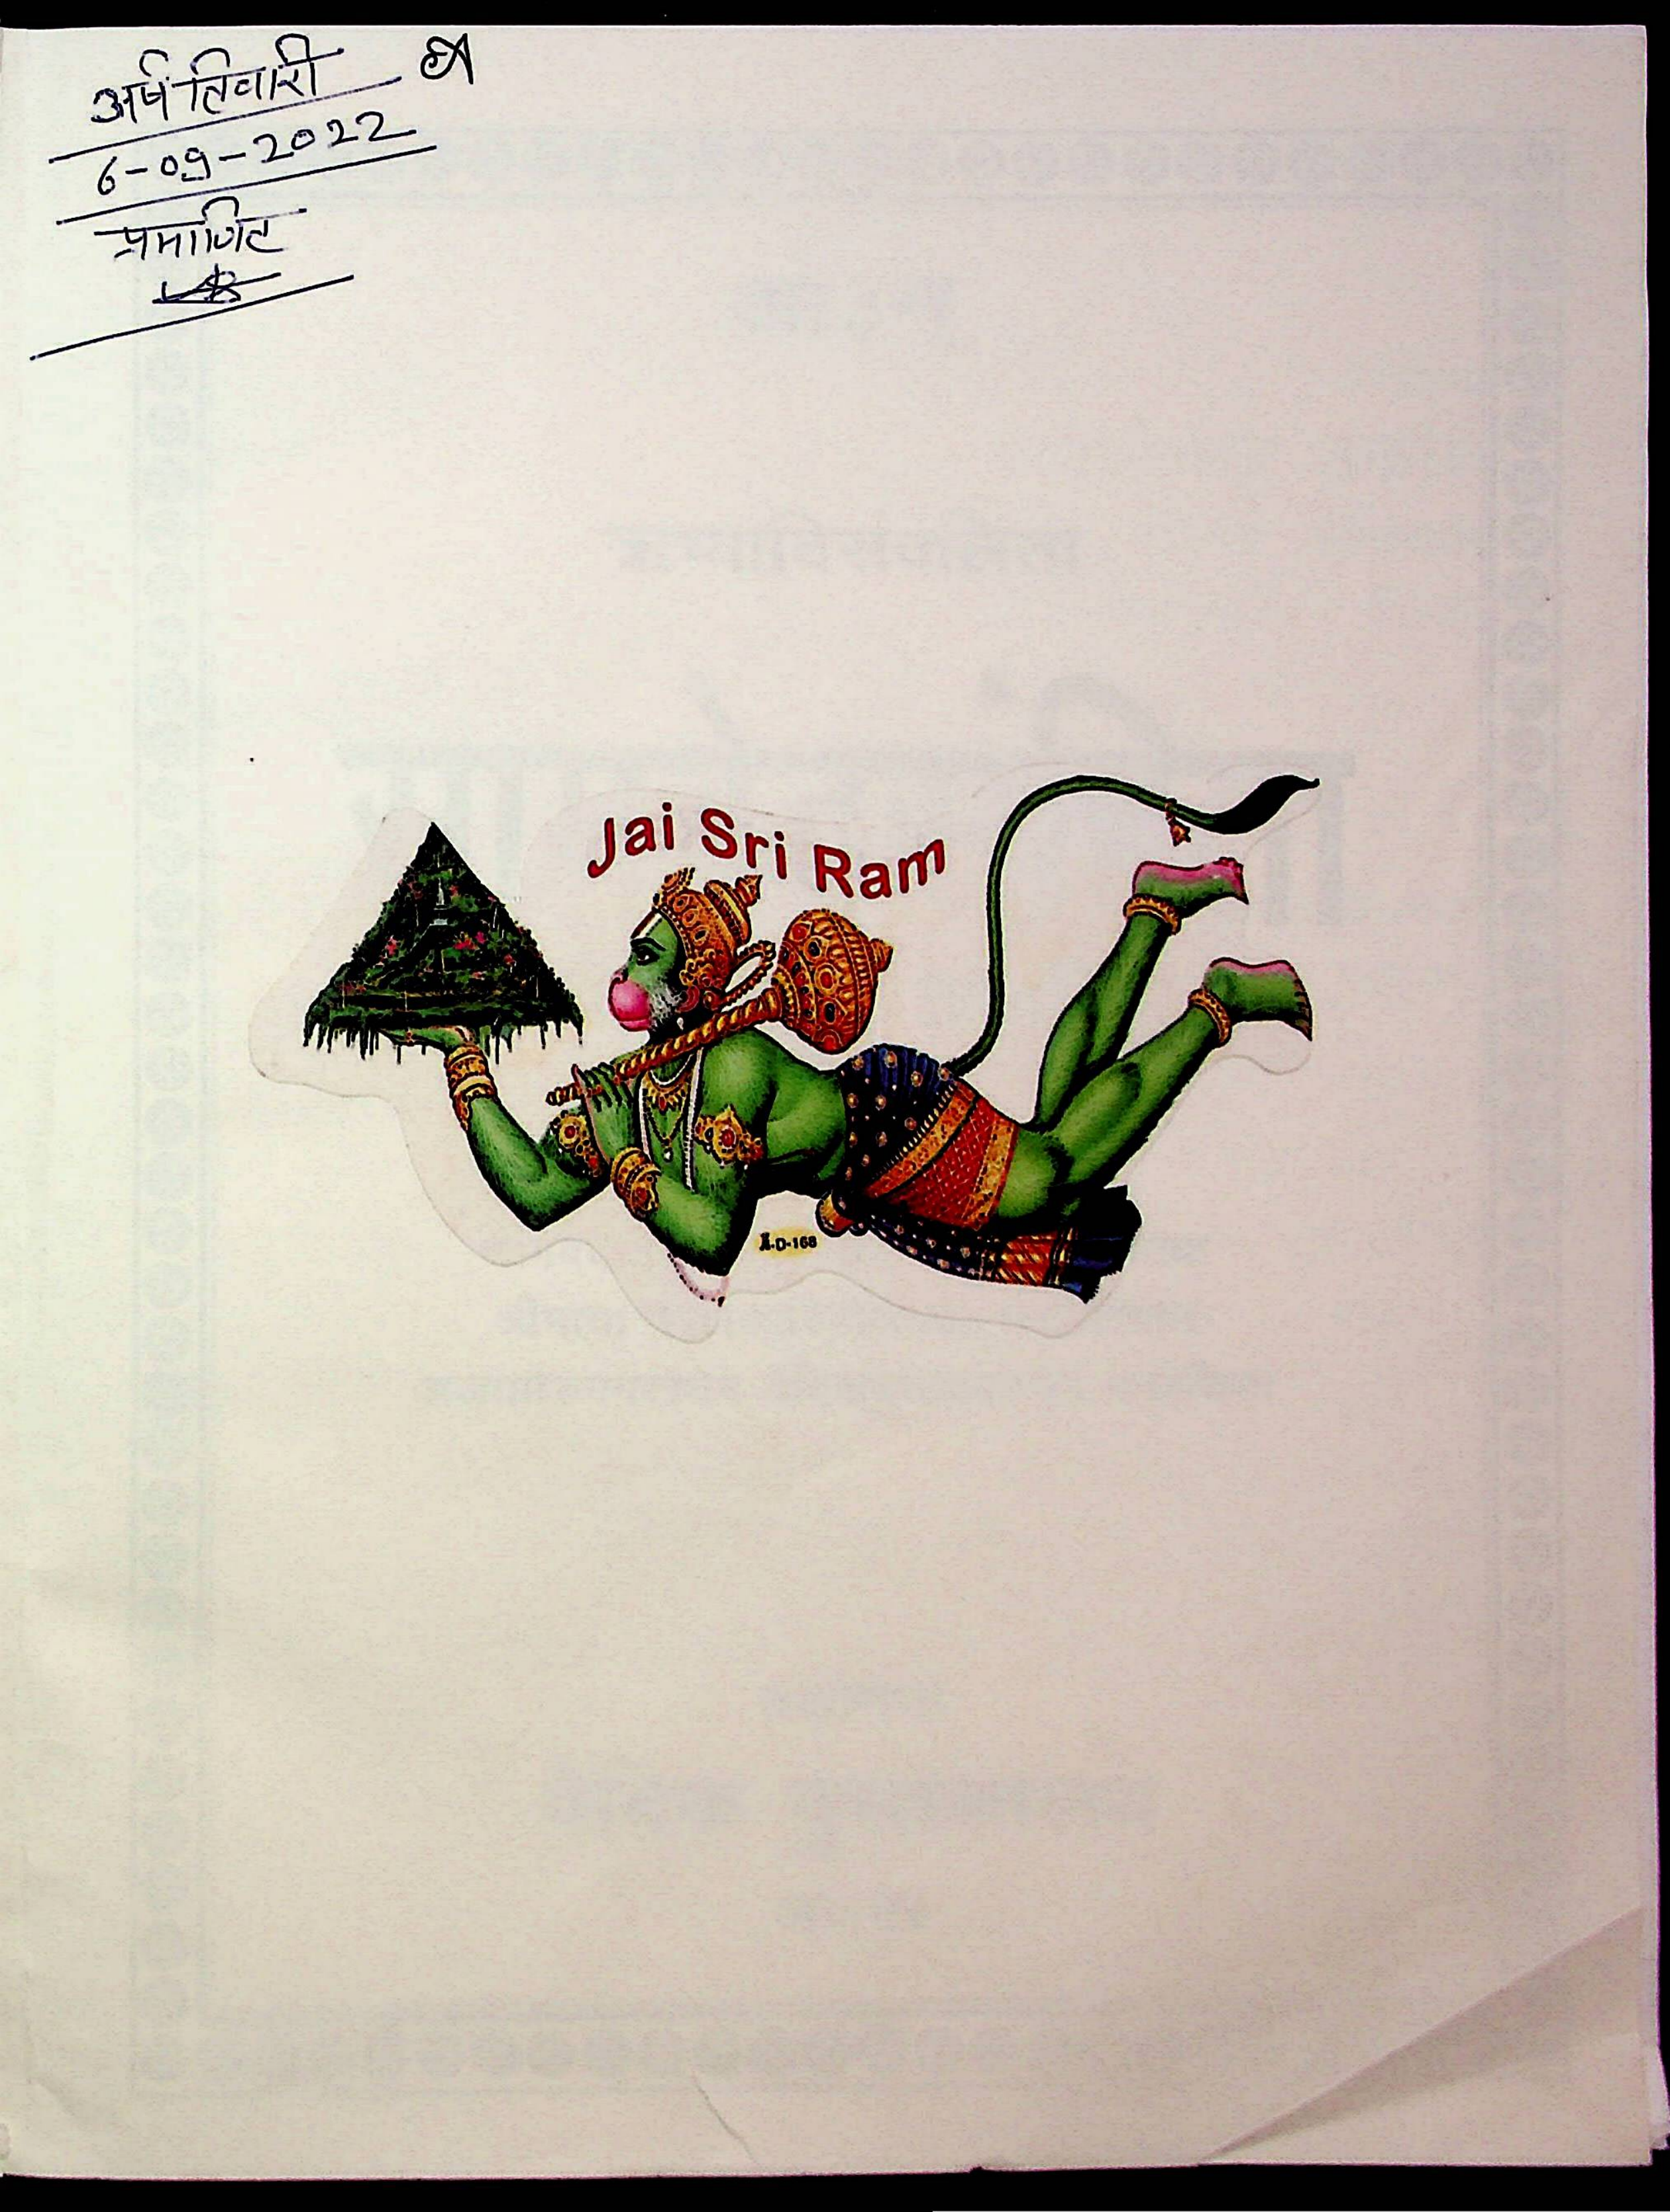 अर्ष तिवारी
6-09-2022
प्रमाणित
Jai Sri Ram
D-168